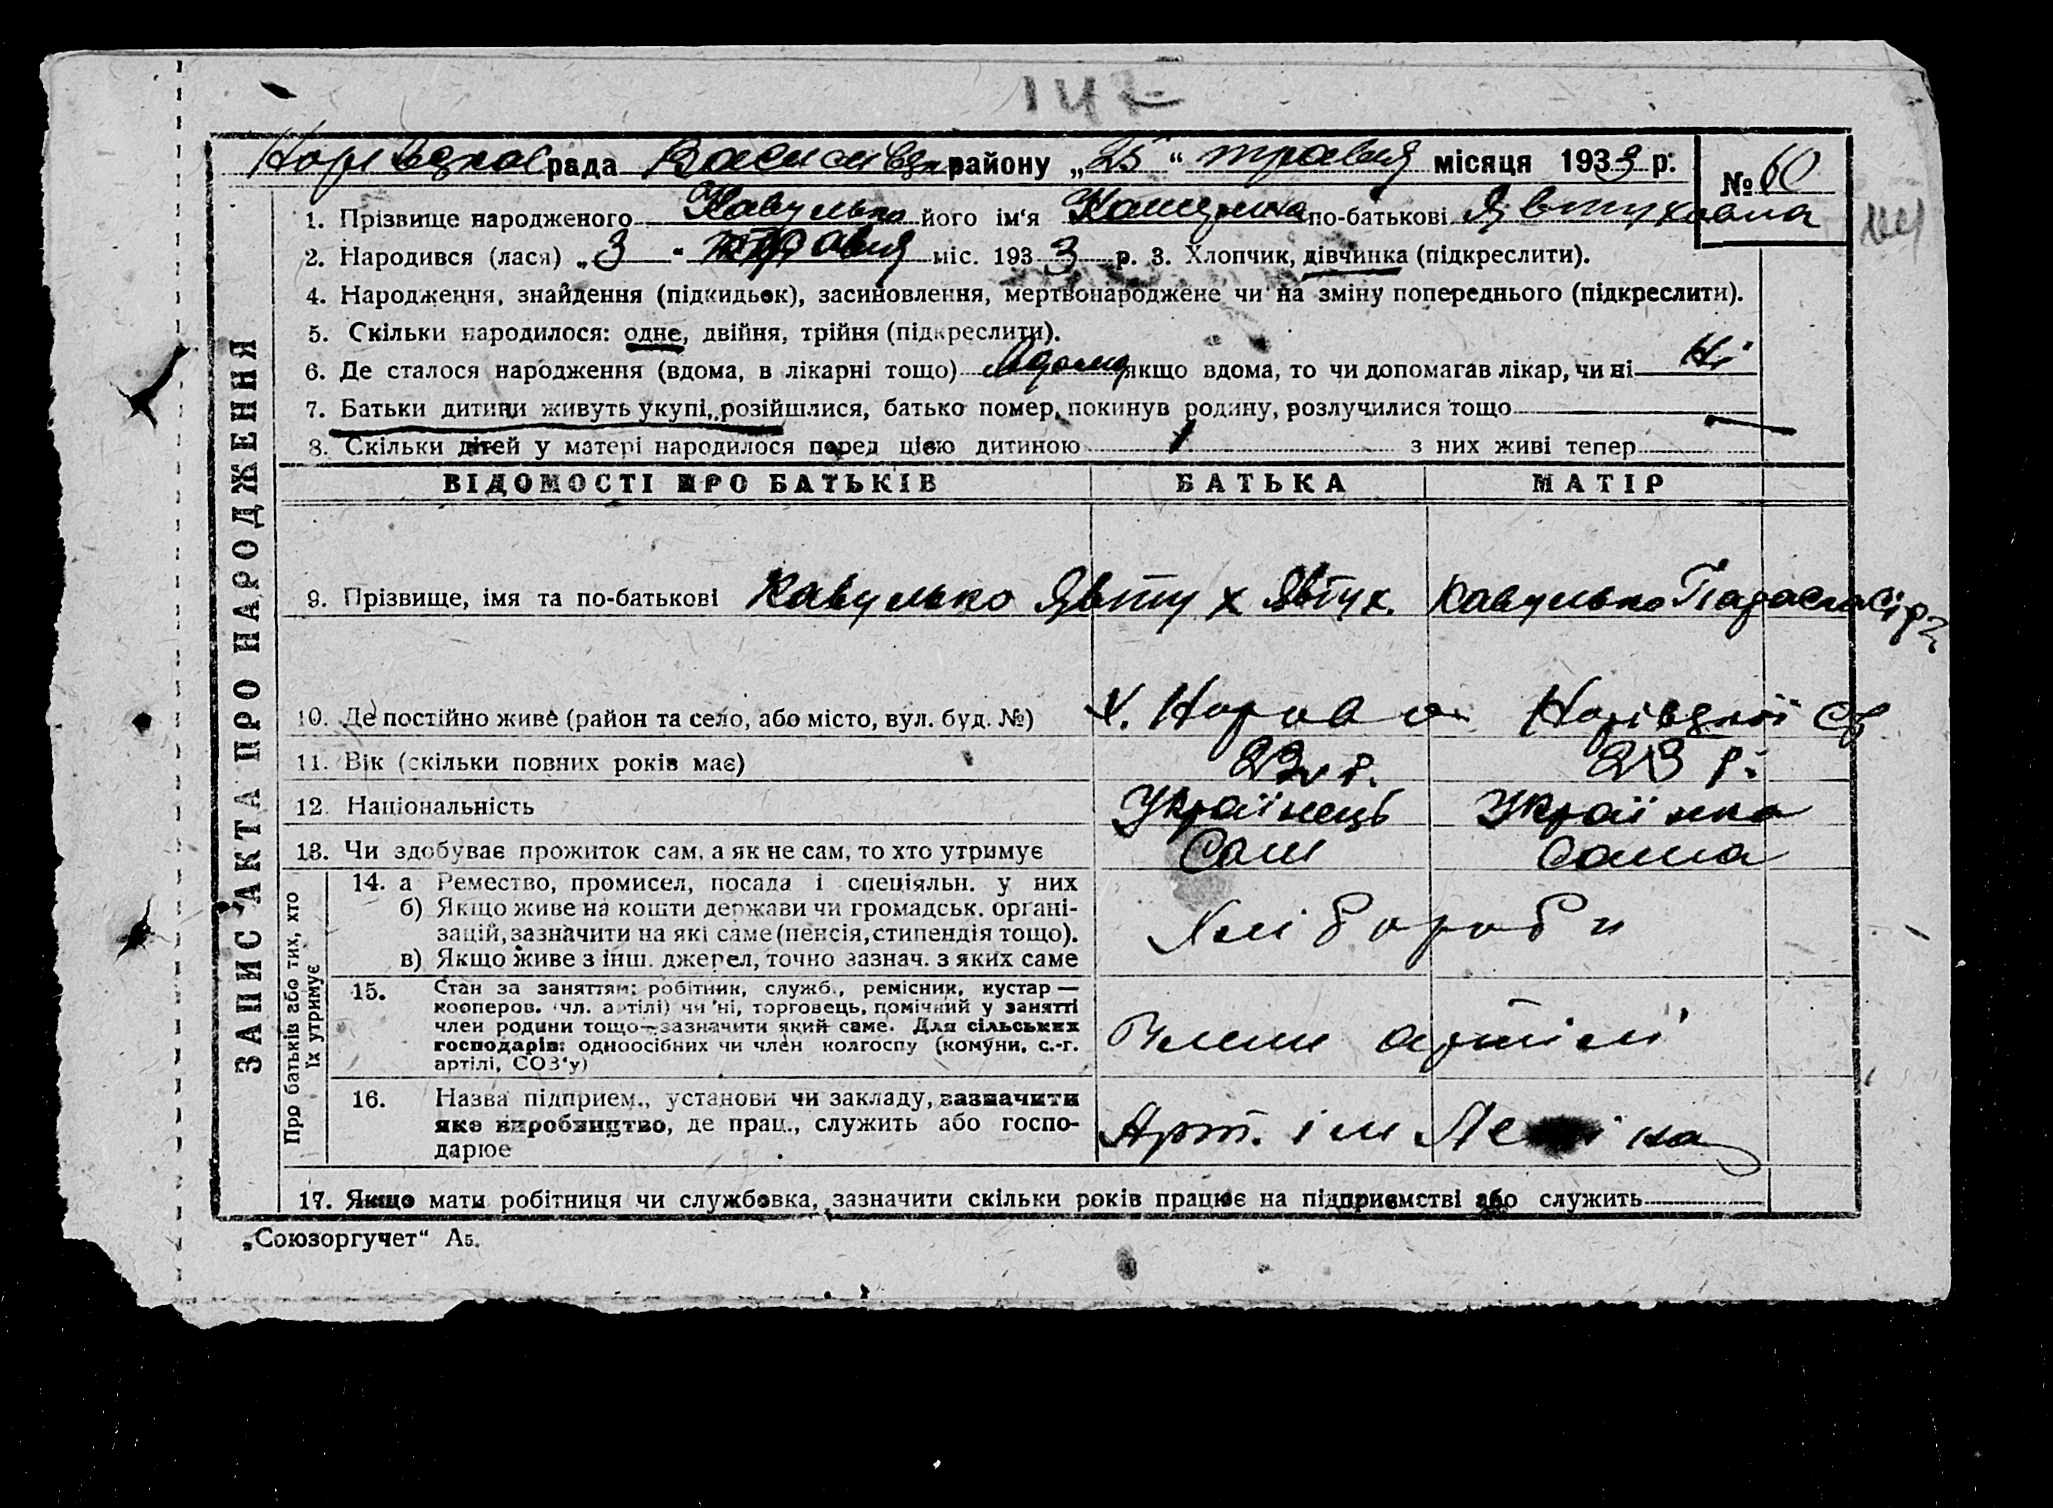 147
рада району „25“ травня місяця 1933 р.
№ 60
1. Прізвище народженого Кавулько його ім'я по-батькові Явтуховна
2. Народився (лася) „3“ травня міс. 1933 р. 3. Хлопчик, дівчинка (підкреслити).
4. Народження, знайдення (підкидьок), засиновлення, мертвонароджене чи на зміну попереднього (підкреслити).
5. Скільки народилося: одне, двійня, трійня (підкреслити).
6. Де сталося народження (вдома, в лікарні тощо) вдома якщо вдома, то чи допомагав лікар, чи ні Ні
7. Батьки дитини живуть укупі, розійшлися, батько помер, покинув родину, розлучилися тощо
8. Скільки дітей у матері народилося перед цією дитиною 1 з них живі тепер —
ВІДОМОСТІ ПРО БАТЬКІВ БАТЬКА МАТІР
9. Прізвище, імя та по-батькові Кавулько Явтух Явтух. Кавулько Параска
10. Де постійно живе (район та село, або місто, вул. буд. №) х.
11. Вік (скільки повних років має) 22 р. 23 р.
12. Національність Українець Українка
13. Чи здобуває прожиток сам, а як не сам, то хто утримує Сам Сама
14. а Ремество, промисел, посада і спеціяльн. у них
б) Якщо живе на кошти держави чи громадськ. органі-
зацій, зазначити на які саме (пенсія, стипендія тощо).
в) Якщо живе з інш. джерел, точно зазнач. з яких саме
Хлібороби
15. Стан за заняттям: робітник, служб., ремісник, кустар —
кооперов. (чл. артілі) чи ні, торговець, помічний у занятті
член родини тощо—зазначити який саме. Для сільських
господарів: одноосібних чи член колгоспу (комуни, с.-г.
артілі, СОЗ'у)
Члени артілі
16. Назва підприєм., установи чи закладу, зазначити
яке виробництво, де прац., служить або госпо-
дарює
Арт. ім Леніна
17. Якщо мати робітниця чи службовка, зазначити скільки років працює на підприємстві або служить
ЗАПИС АКТА ПРО НАРОДЖЕННЯ
Про батьків або тих, хто
їх утримує
„Союзоргучет“ А5.